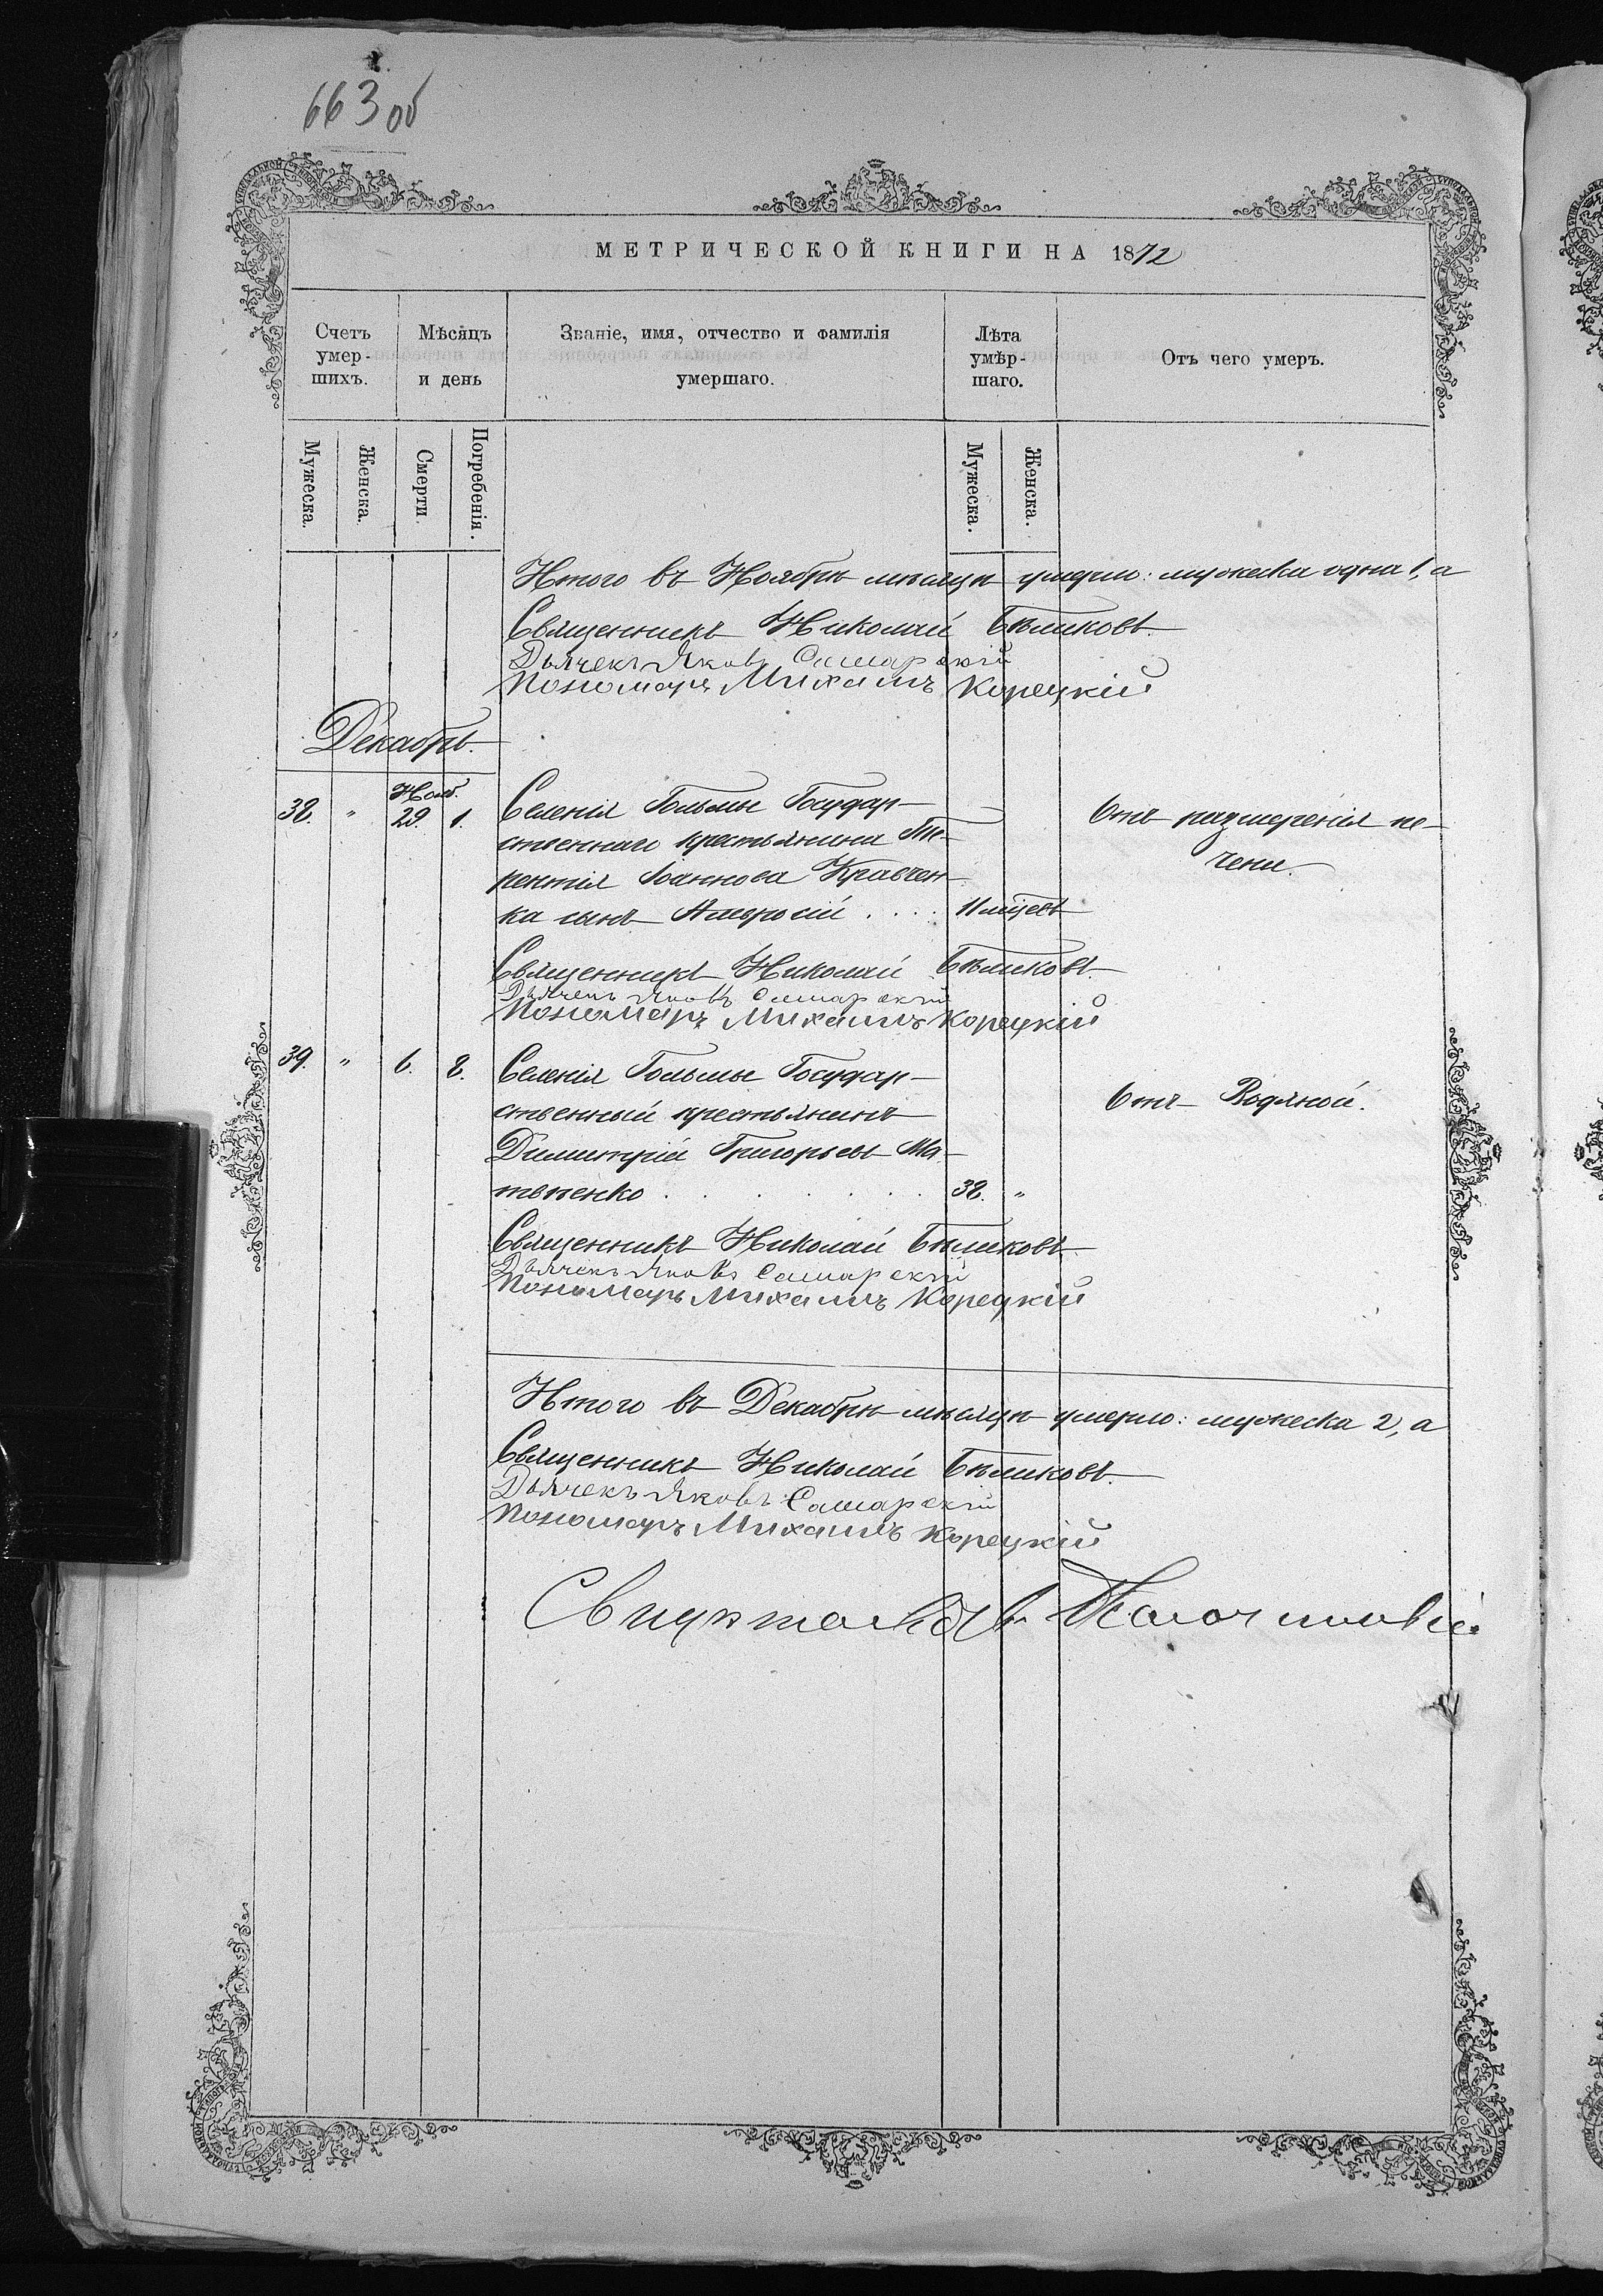 663 об
МЕТРИЧЕСКОЙ КНИГИ НА 1872
Счетъ умер-шихъ.
Мѣсяцъ и день
Званіе, имя, отчество и фамилія умершаго.
Лѣта умѣр-шаго.
Отъ чего умеръ.
Мужеска.
Женска.
Смерти.
Погребенія.
Мужеска.
Женска.
Итого въ Ноябрѣ мѣсяцѣ умерло: мужеска одна 1, а
Священникъ Николай Бѣликовъ.
Дьячекъ Яковъ Самарскій
Пономарь Михаилъ Корецкій
Декабрь.
Нояб.
38. " 29. 1. Селенія Гольмы Государ-
ственнаго крестьянина
Іоаннова Кравчен-
ка сынъ Амвросій . . . . 11 мѣсцевъ
Отъ размереній пе-
чени.
Священникъ Николай Бѣликовъ.
Дьячекъ Яковъ Самарскій
Пономарь Михаилъ Корецкій
39. " 6. 8. Селенія Гольмы Государ-
ственный крестьянинъ
Димитрій Григорьевъ Ма-
твѣенко . . . . . . . 38. "
Отъ Водяной.
Священникъ Николай Бѣликовъ
Дьячекъ Яковъ Самарскій
Пономарь Михаилъ Корецкій
Итого въ Декабрѣ мѣсяцѣ умерло: мужеска 2, а
Священникъ Николай Бѣликовъ.
Дьячекъ Яковъ Самарскій
Пономарь Михаилъ Корецкій